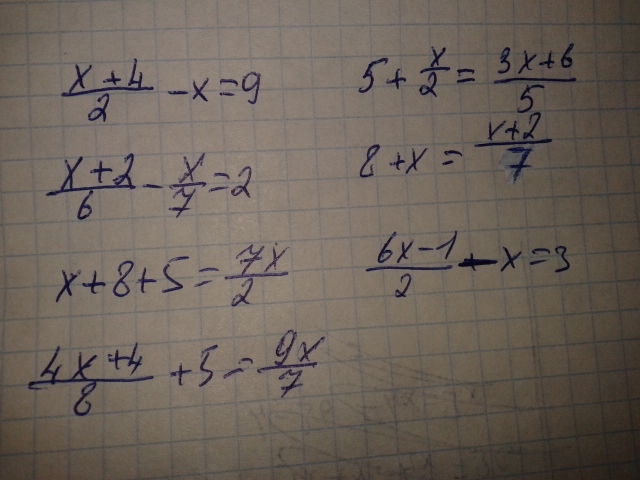 (x+4)/2 - x = 9
(x+2)/6 - x/7 = 2
x+8+5 = 7x/2
(4x+4)/8 + 5 = 9x/7
5 + x/2 = (3x+6)/5
8 + x = (x+2)/7
(6x-1)/2 - x = 3